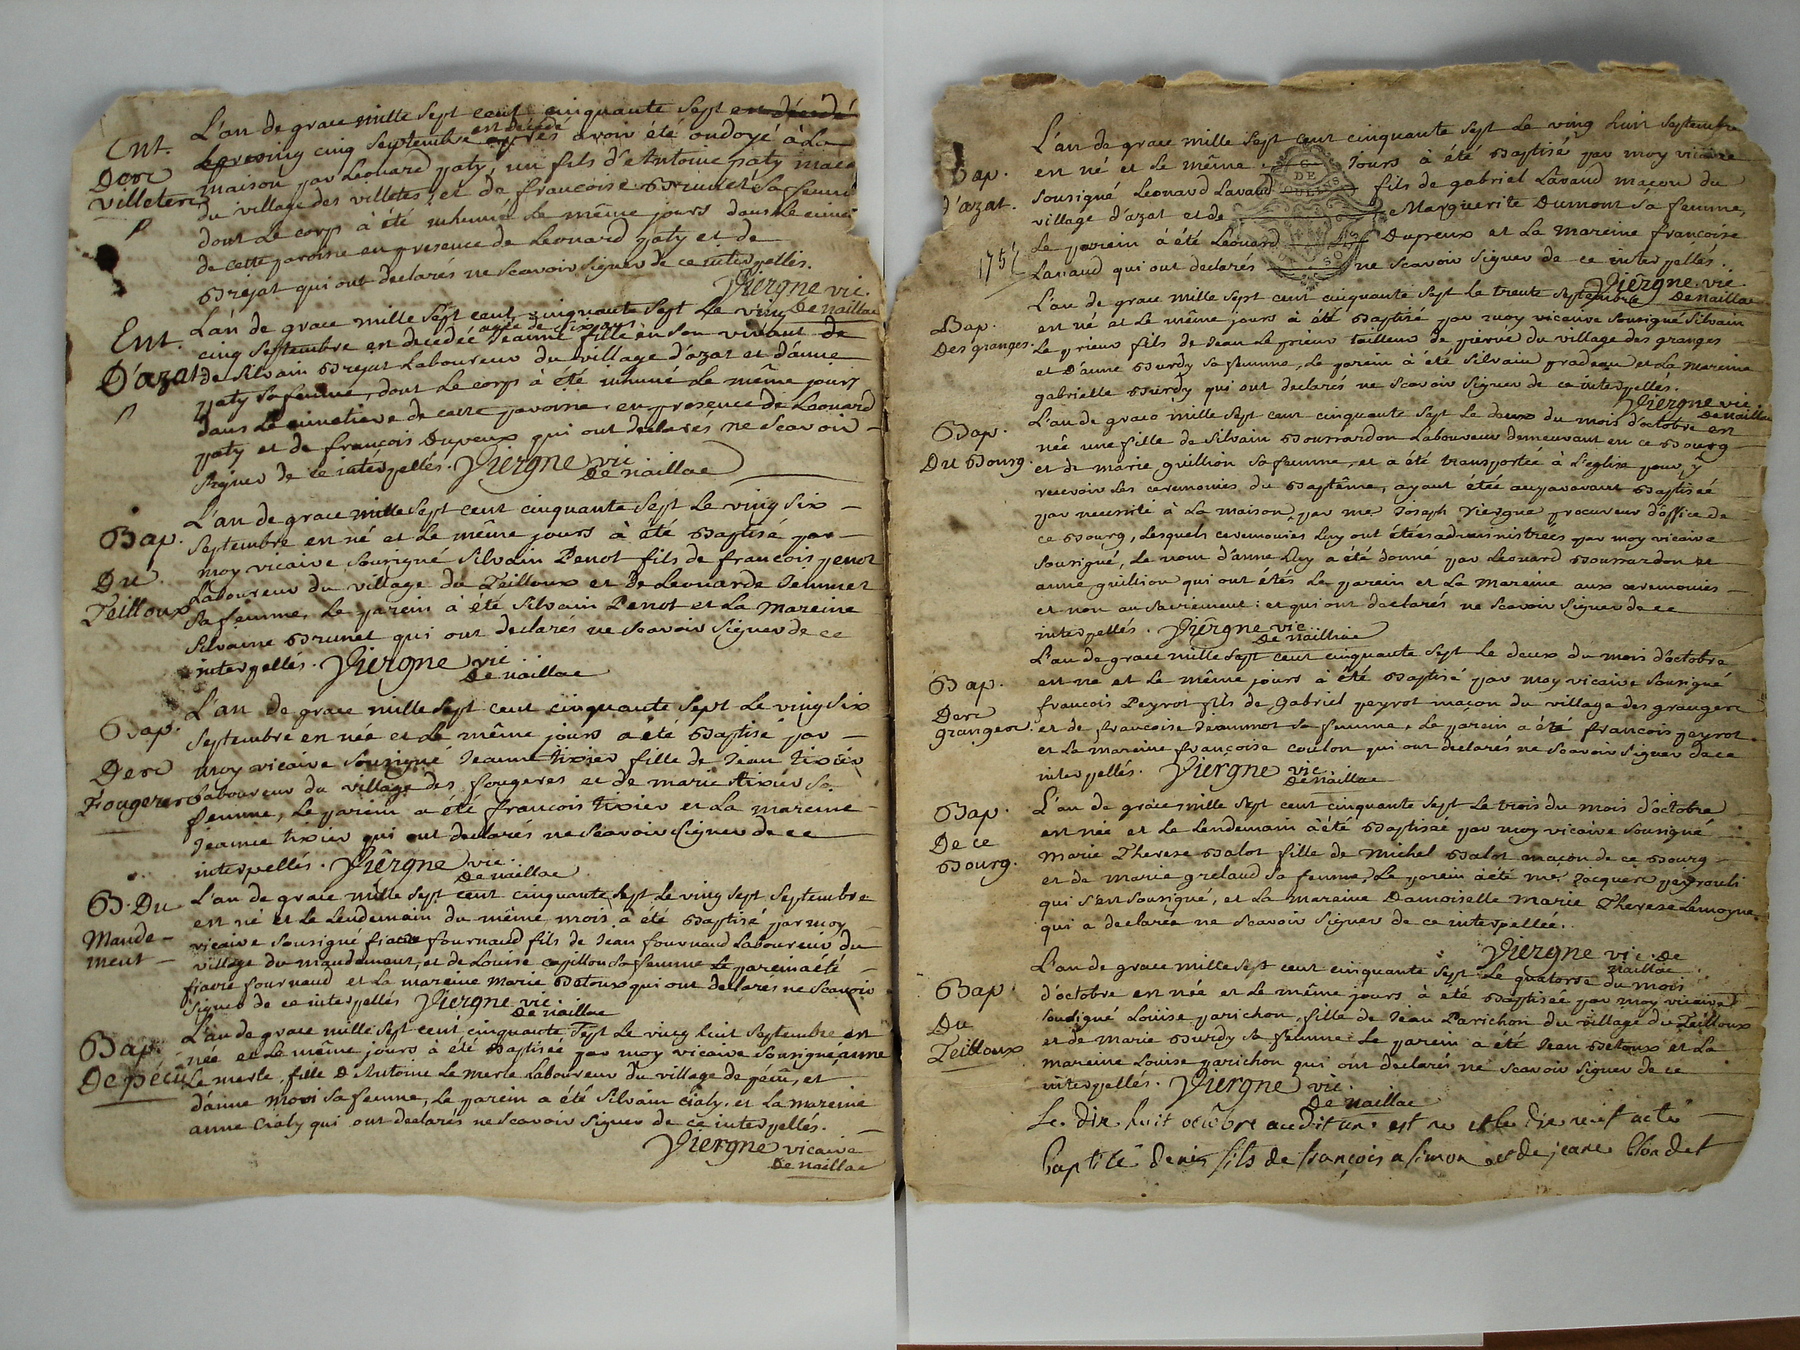 Ent.
Des
villetes
L'an de grace mille sept cent cinquante sept est décédé
le vingt cinq septembre est décédé après avoir été ondoyé à la
maison par Leonard paty, un fils d'Antoine paty
du village des villetes, et de françoise Brunet sa femme
dont le corps à été inhumé le même jours dans le
de cette paroisse en presence de Leonard paty et de
Brejat qui ont declarés ne scavoir signer de ce interpellés.
Viergne vic.
De naillac
Ent.
D'azat
L'an de grace mille sept cent cinquante sept Le ving
cinq septembre en décédée agée de six ans Jeanne fille en son vivant de
de Silvain Brejat Laboureur du village d'azat et d'anne
paty sa femme, dont Le corps à été inhumé Le même jours
dans Le cimetiere de cette paroisse en presence de Leonard
paty et de françois Dupeux qui ont declarés ne scavoir
signer de ce interpellés. Viergne vic
De naillac
Bap.
Du
Teilloux
L'an de grace mille sept cent cinquante sept Le ving six
septembre en né et Le même jours à été Baptisé par
moy vicaire sousigné Silvain Penot fils de francois penot
Laboureur du village du Teilloux et de Leonarde Jennet
sa femme, Le parein à été Silvain Penot et La Mareine
Silvaine Brunet qui ont declarés ne scavoir signer de ce
interpellés. Viergne vic
De naillac
Bap.
Des
Fougeres
L'an de grace mille sept cent cinquante sept Le ving six
septembre en née et Le même jours a été Baptisé par
moy vicaire sousigné Jeanne tixier fille de Jean tixier
Laboureur du village des fougeres et de marie tixier sa
femme, Le parein a été francois tixier et La mareine
Jeanne tixier qui ont declarés ne scavoir signer de ce
interpellés. Viergne vic.
De naillac
B. Du
Mande-
ment
L'an de grace mille sept cent cinquante sept Le ving sept septembre
en né et Le Lendemain du même mois à été Baptisé par moy
vicaire sousigné fiacre fournaud fils de Jean fournaud Laboureur du
village du mandement, et de Louise capillon sa femme Le parein a été
fiacre fournaud et La mareine Marie Betoux qui ont declarés ne scavoir
signer de ce interpellés Viergne vic.
De naillac
Bap.
De pécu
L'an de grace mille sept cent cinquante sept Le ving huit septembre en
née et Le même jours à été Baptisée par moy vicaire sousigné anne
Le merle, fille D Antoine Le merle Laboureur du village de pécu, et
d'anne mori sa femme, Le parein a été Silvain Cialy. et La mareine
anne Cialy qui ont declarés ne scavoir signer de ce interpellés.
Viergne vicaire
De naillac
Bap.
d'azat.
L'an de grace mille sept cent cinquante sept Le ving huit septembre
en né et Le même jours à été Baptisé par moy vicaire
sousigné Leonard Lavaud fils de gabriel Lavaud maçon du
village d'azat et de Marguerite Dumont sa femme,
Le parein à été Leonard Dupreux et La mareine françoise
Lavaud qui ont declarés ne scavoir signer de ce interpellés.
Viergne vic
De naillac
Bap.
Des granges.
L'an de grace mille sept cent cinquante sept Le trente septembre
en né et Le même jours à été Baptisé par moy vicaire sousigné Silvain
Le prieur fils de Jean Le prieur tailleur de pierre du village des granges
et D'anne Burdy sa femme, Le parein à été Silvain pradeau et La mareine
gabrielle Burdy qui ont declarés ne scavoir signer de ce interpellés.
Viergne vic
De naillac
Bap.
Du Bourg
L'an de grace mille sept cent cinquante sept Le deux du mois d'octobre en
née une fille de Silvain Boussardon Laboureur demeurant en ce Bourg
et de marie guillion sa femme, et a été transportée à L'eglise pour y
recevoir Les ceremonies du Baptême, ayant etée auparavant Baptisée
par necessité à La maison, par me Joseph Viergne procureur d'office de
ce Bourg, Lesquels ceremonies Luy ont étées administrées par moy vicaire
sousigné, Le nom d'anne Luy a été donné par Leonard Boussardon et
anne guillion qui ont étés Le parein et La Mareine aux ceremonies
et non au sacrement: et qui ont declarés ne scavoir signer de ce
interpellés. Viergne vic.
De naillac
Bap.
Des
granges.
L'an de grace mille sept cent cinquante sept Le deux du mois d'octobre
en né et Le même jours à été Baptisé par moy vicaire sousigné
françois Peyrot fils de gabriel peyrot maçon du village des granges
et de françoise Jeannot sa femme, Le parein a été françois peyrot
et La mareine françoise coulon qui ont declarés ne scavoir signer de ce
interpellés. Viergne vic
De naillac
Bap
De ce
Bourg.
L'an de grace mille sept cent cinquante sept Le trois du mois d'octobre
en née et Le Lendemain à été Baptisée par moy vicaire sousigné
Marie Therese Balot fille de Michel Balot maçon de ce Bourg
et de marie grelaud sa femme, Le parein a été me Jacques peyrouli
qui s'est sousigné, et La mareine Damoiselle Marie Therese Lemoyne
qui a declarée ne scavoir signer de ce interpellée.
Viergne vic. de
naillac
Bap.
Du
Teilloux
L'an de grace mille sept cent cinquante sept Le quatorse du mois
d'octobre en née et Le même jours à été Baptisée par moy vicaire
sousigné Louise parichon, fille de Jean Parichon du village du Teilloux
et de Marie Burdy sa femme Le parein a été Jean Betoux et La
mareine Louise parichon qui ont declarés ne scavoir signer de ce
interpellés. Viergne vic.
De naillac
Le dix huit octobre audit an est né et le dix neuf acté
baptisé denis fils de françois asimon et de jeane blondet